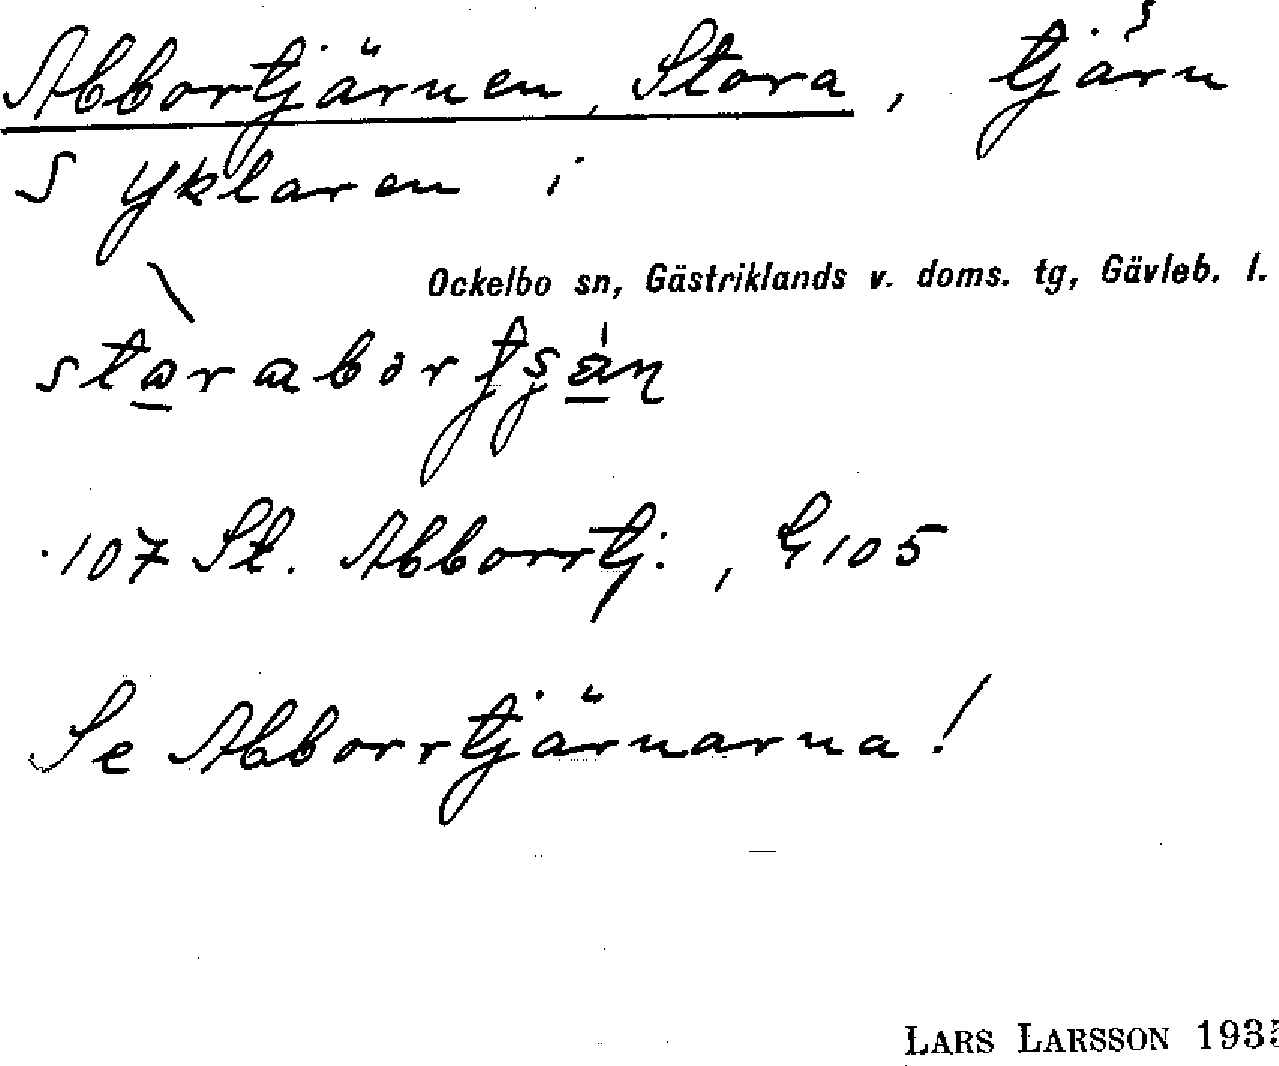 Abbortjärnen, Stora, tjärn
S Yklaren i
Ockelbo sn, Gästriklands v. doms. tg, Gävleb. l.
107 St. Abborrtj:, G105
Se Abborrtjärnarna!
LARS LARSSON 1935